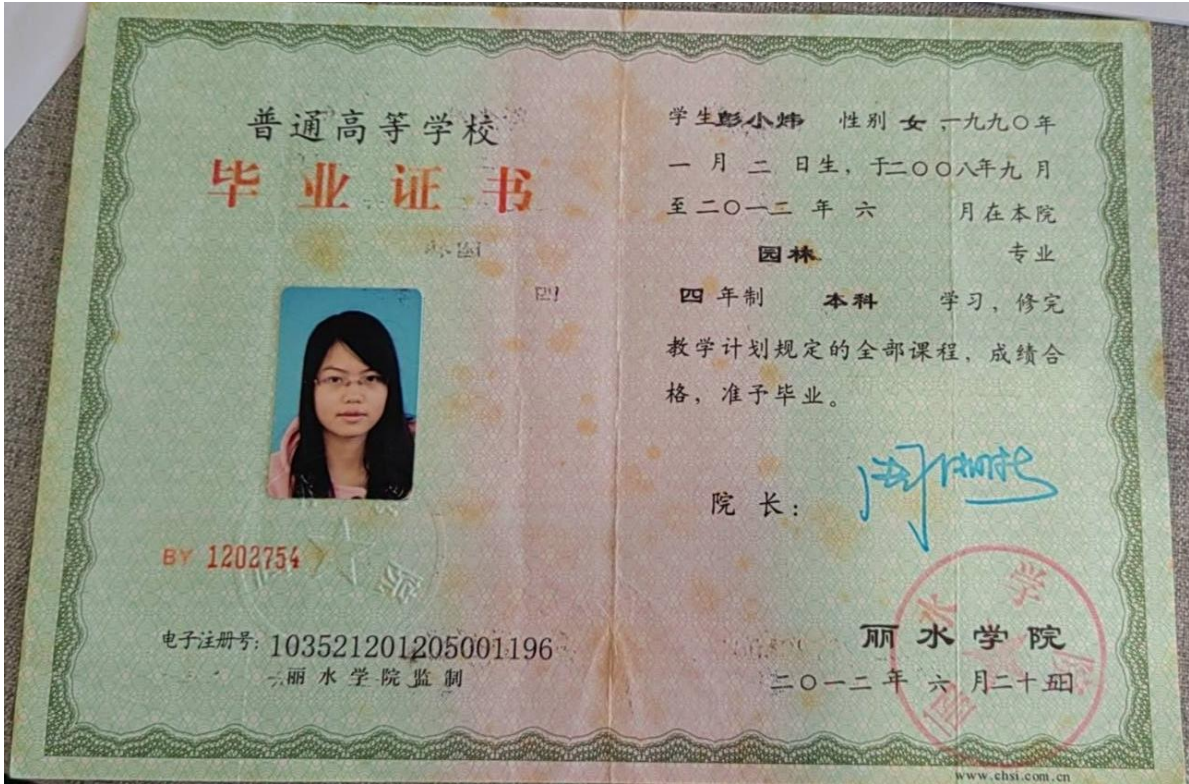 普通高等学校
毕业证书
BY 1202754
电子注册号：103521201205001196
丽水学院监制
学生彭小炜 性别 女，一九九〇年
一 月 二 日生，于二〇〇八年九 月
至二〇一二 年 六 月在本院
园林 专业
四 年制 本科 学习，修完
教学计划规定的全部课程，成绩合
格，准予毕业。
院 长：
丽水学院
二〇一二年 六 月二十五日
www.chsi.com.cn